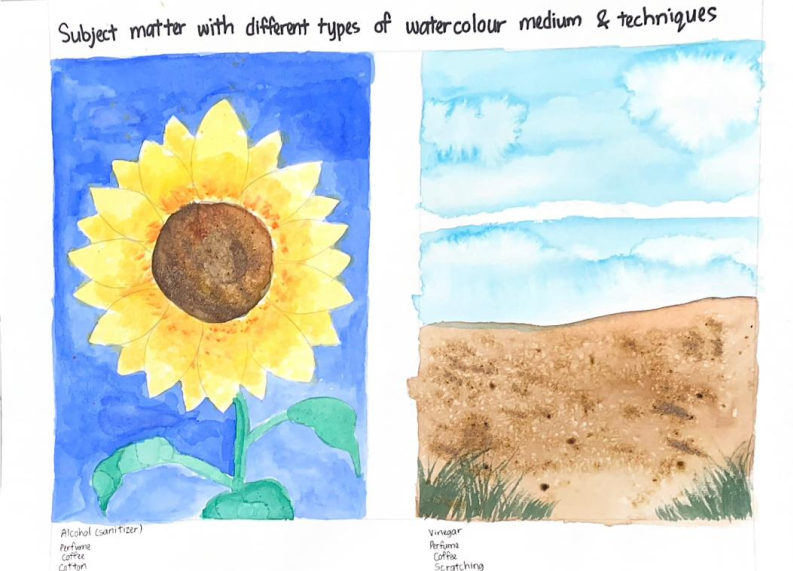 Subject matter with different types of watercolour medium & techniques
Alcohol (sanitizer)
Perfume
Coffee
Cotton
Vinegar
Perfume
Coffee
Scratching